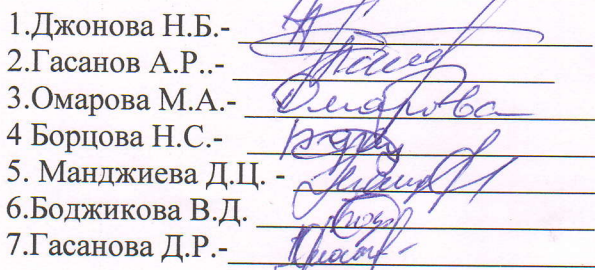 1.Джонова Н.Б.-
2.Гасанов А.Р..-
3.Омарова М.А.- Омарова
4 Борцова Н.С.-
5. Манджиева Д.Ц. -
6.Боджикова В.Д.
7.Гасанова Д.Р.-